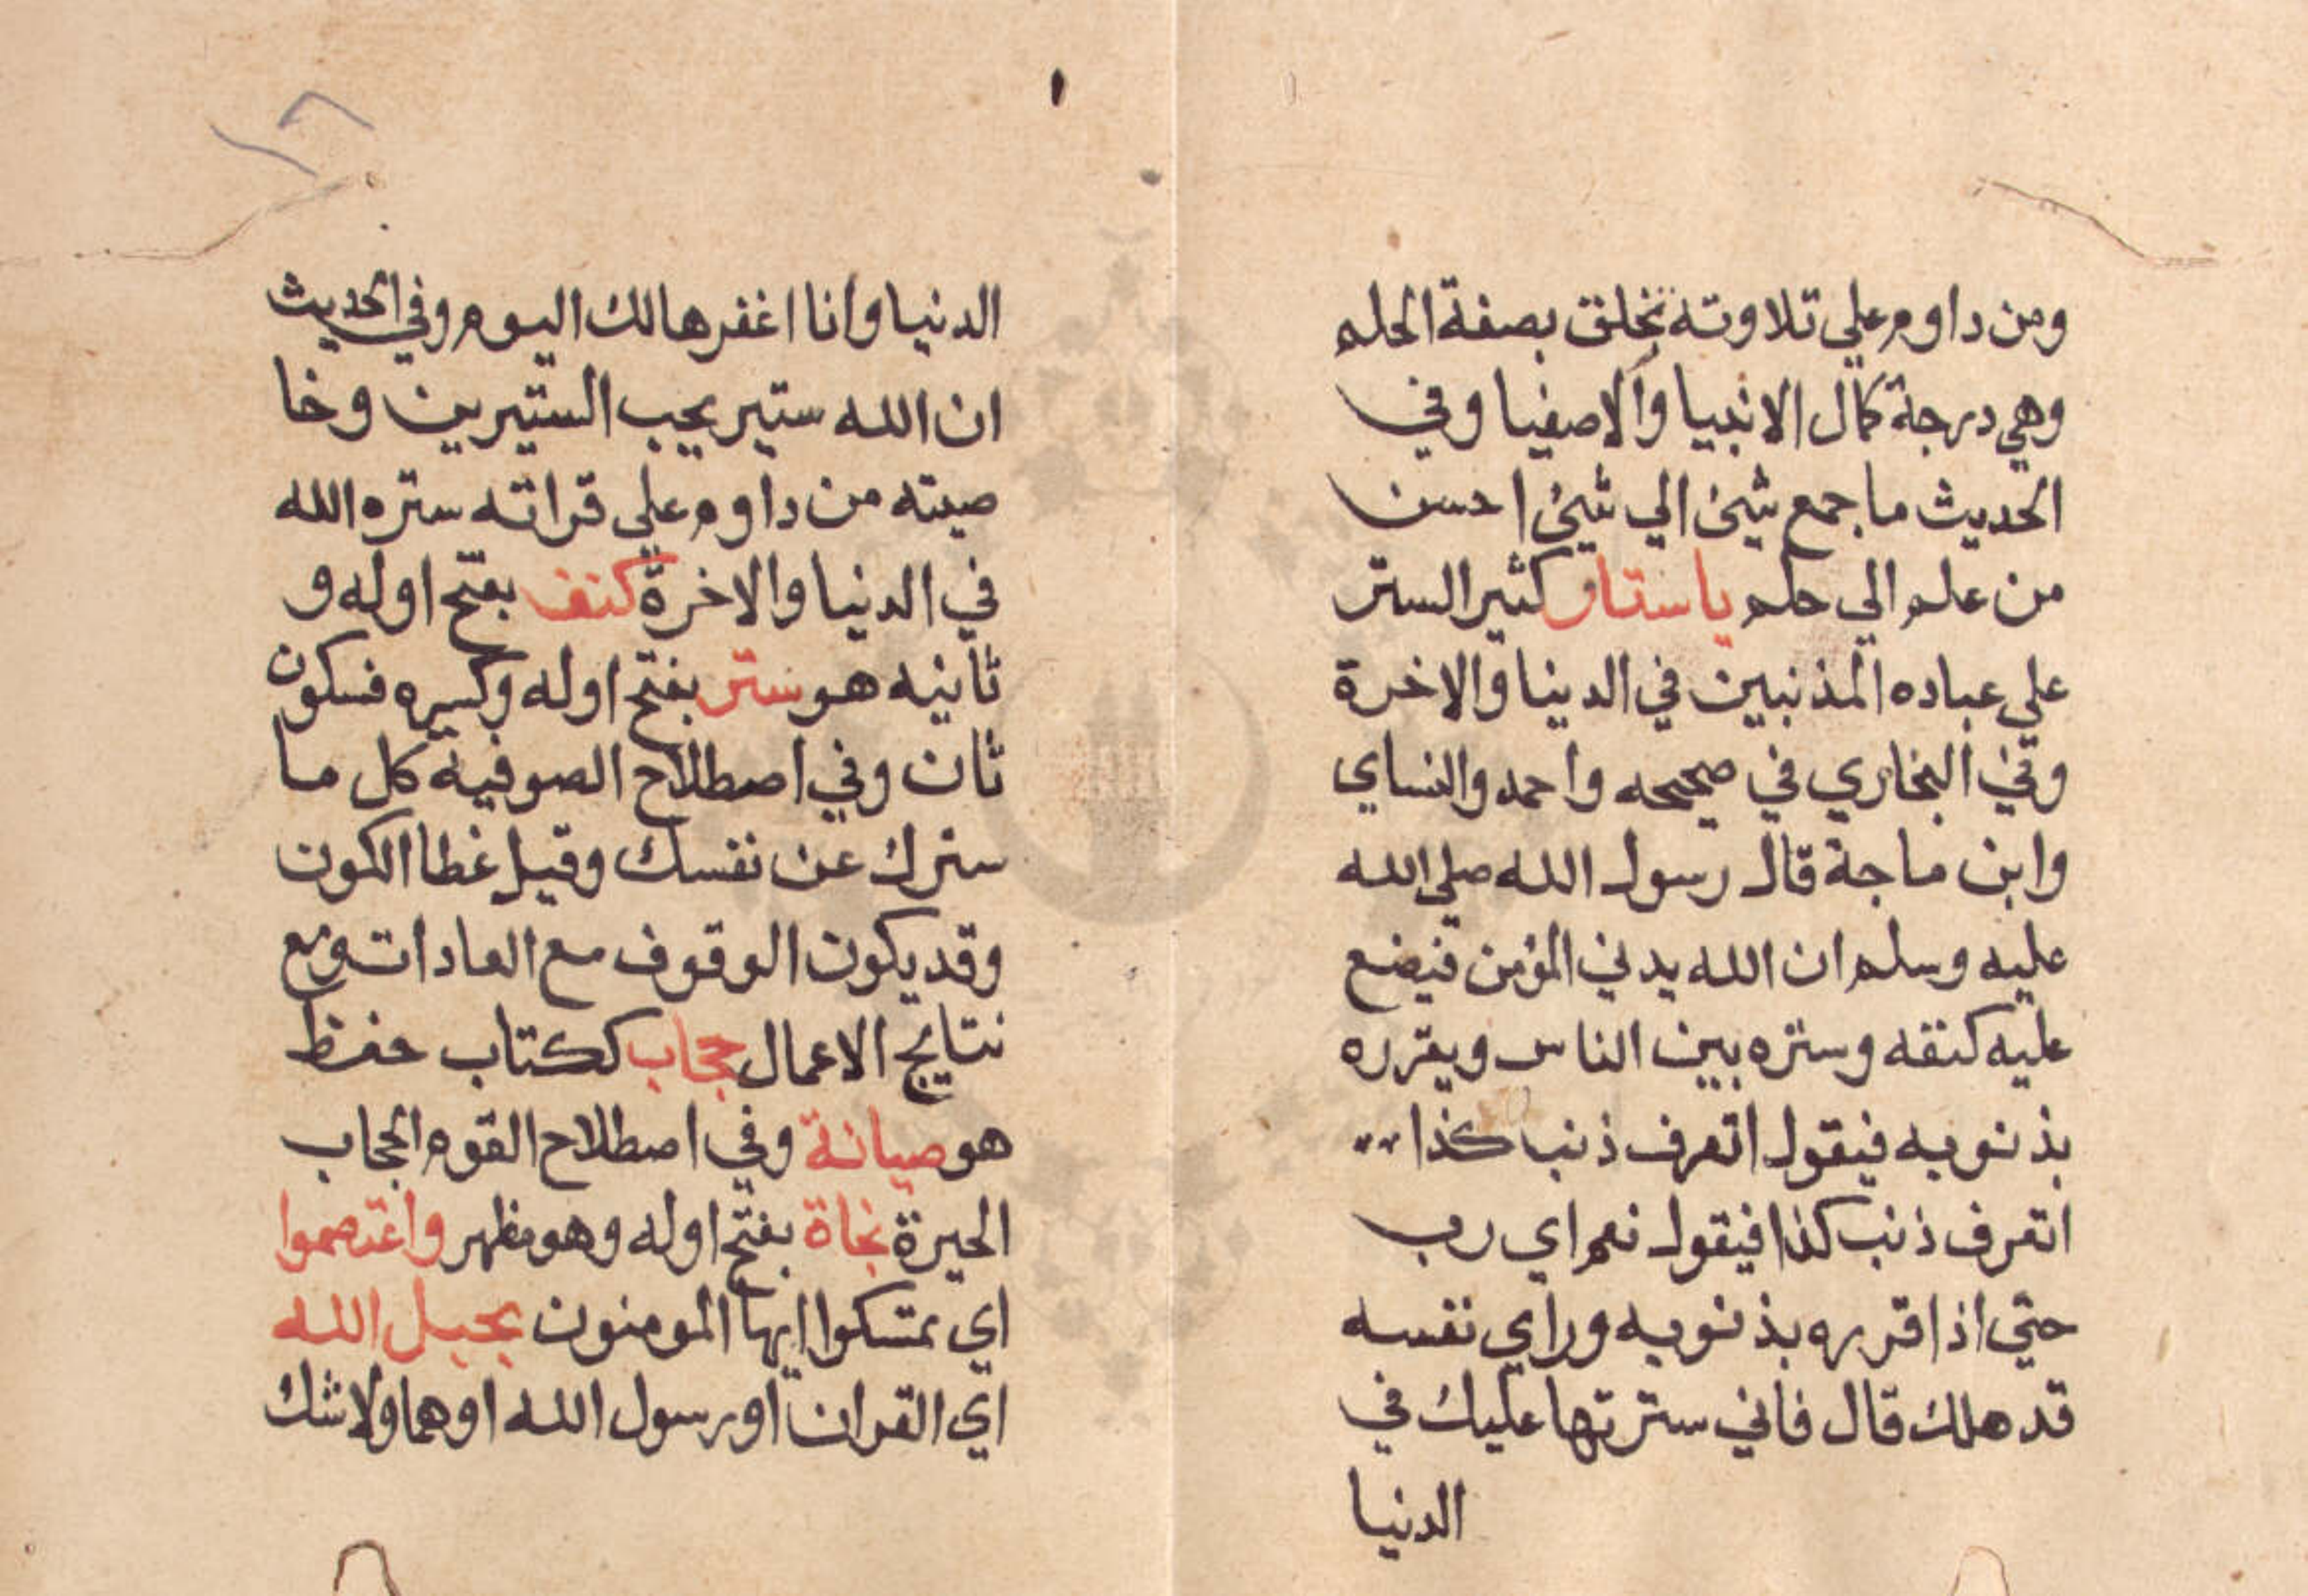 ومن داوم علي تلاوته تخلق بصفة الحلم
وهي درجة كمال الانبيا والاصفيا وفي
الحديث ما جمع شيئ الي شيئ احسن
من علم الي حلم ياستار كثير الستر
علي عباده المذنبين في الدنيا والاخرة
وفي البخاري في صحيحه واحمد والنساي
وابن ماجة قال رسول الله صلي الله
عليه وسلم ان الله يدني المؤمن فيضع
عليه كنفه وستره بين الناس ويقرره
بذنوبه فيقول اتعرف ذنب كذا
اتعرف ذنب كذا فيقول نعم اي رب
حتي اذا قرره بذنوبه وراي نفسه
قد هلك قال فاني سترتها عليك في
الدنيا
١
الدنيا وانا اغفرها لك اليوم وفي الحديث
ان الله ستير يحب الستيرين وخا
صيته من داوم علي قراته ستره الله
في الدنيا والاخرة كنف بفتح اوله و
ثانيه هو ستر بفتح اوله وكسره فسكون
ثان وفي اصطلاح الصوفية كل ما
سترك عن نفسك وقيل غطا الكون
وقد يكون الوقوف مع العادات ومع
نتايج الاعمال حجاب ككتاب حفظ
هو صيانة وفي اصطلاح القوم الحجاب
الحيرة نجاة بفتح اوله وهو مظهر واعتصموا
اي تمسكوا ايها المومنون بحبل الله
اي القران او رسول الله اوهما ولا شك